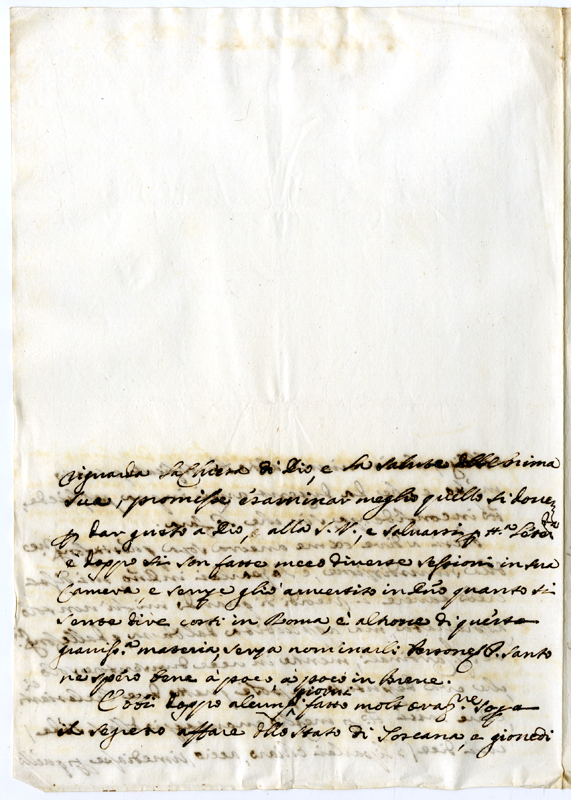 riguarda la Chiesa di Dio, e la salute dell'Anima
sua, promisse esaminar meglio quello si dovea
p dar gusto a Dio, alla S. V., e salvarsi p
e doppo si son fatte meco diverse sessioni in sua
Camera, e sempre gli ò avvertito in quanto si
sente di ve corti in Roma, e altrove di questa
graviss.a materia, senza nominarli Persone, P. santo
ne spero bene à poco, à poco in breve.
E così doppo alcuni giorni fatto molt' oraz.ne sopra
il segreto affare dllo stato di Toscana, e giovedi